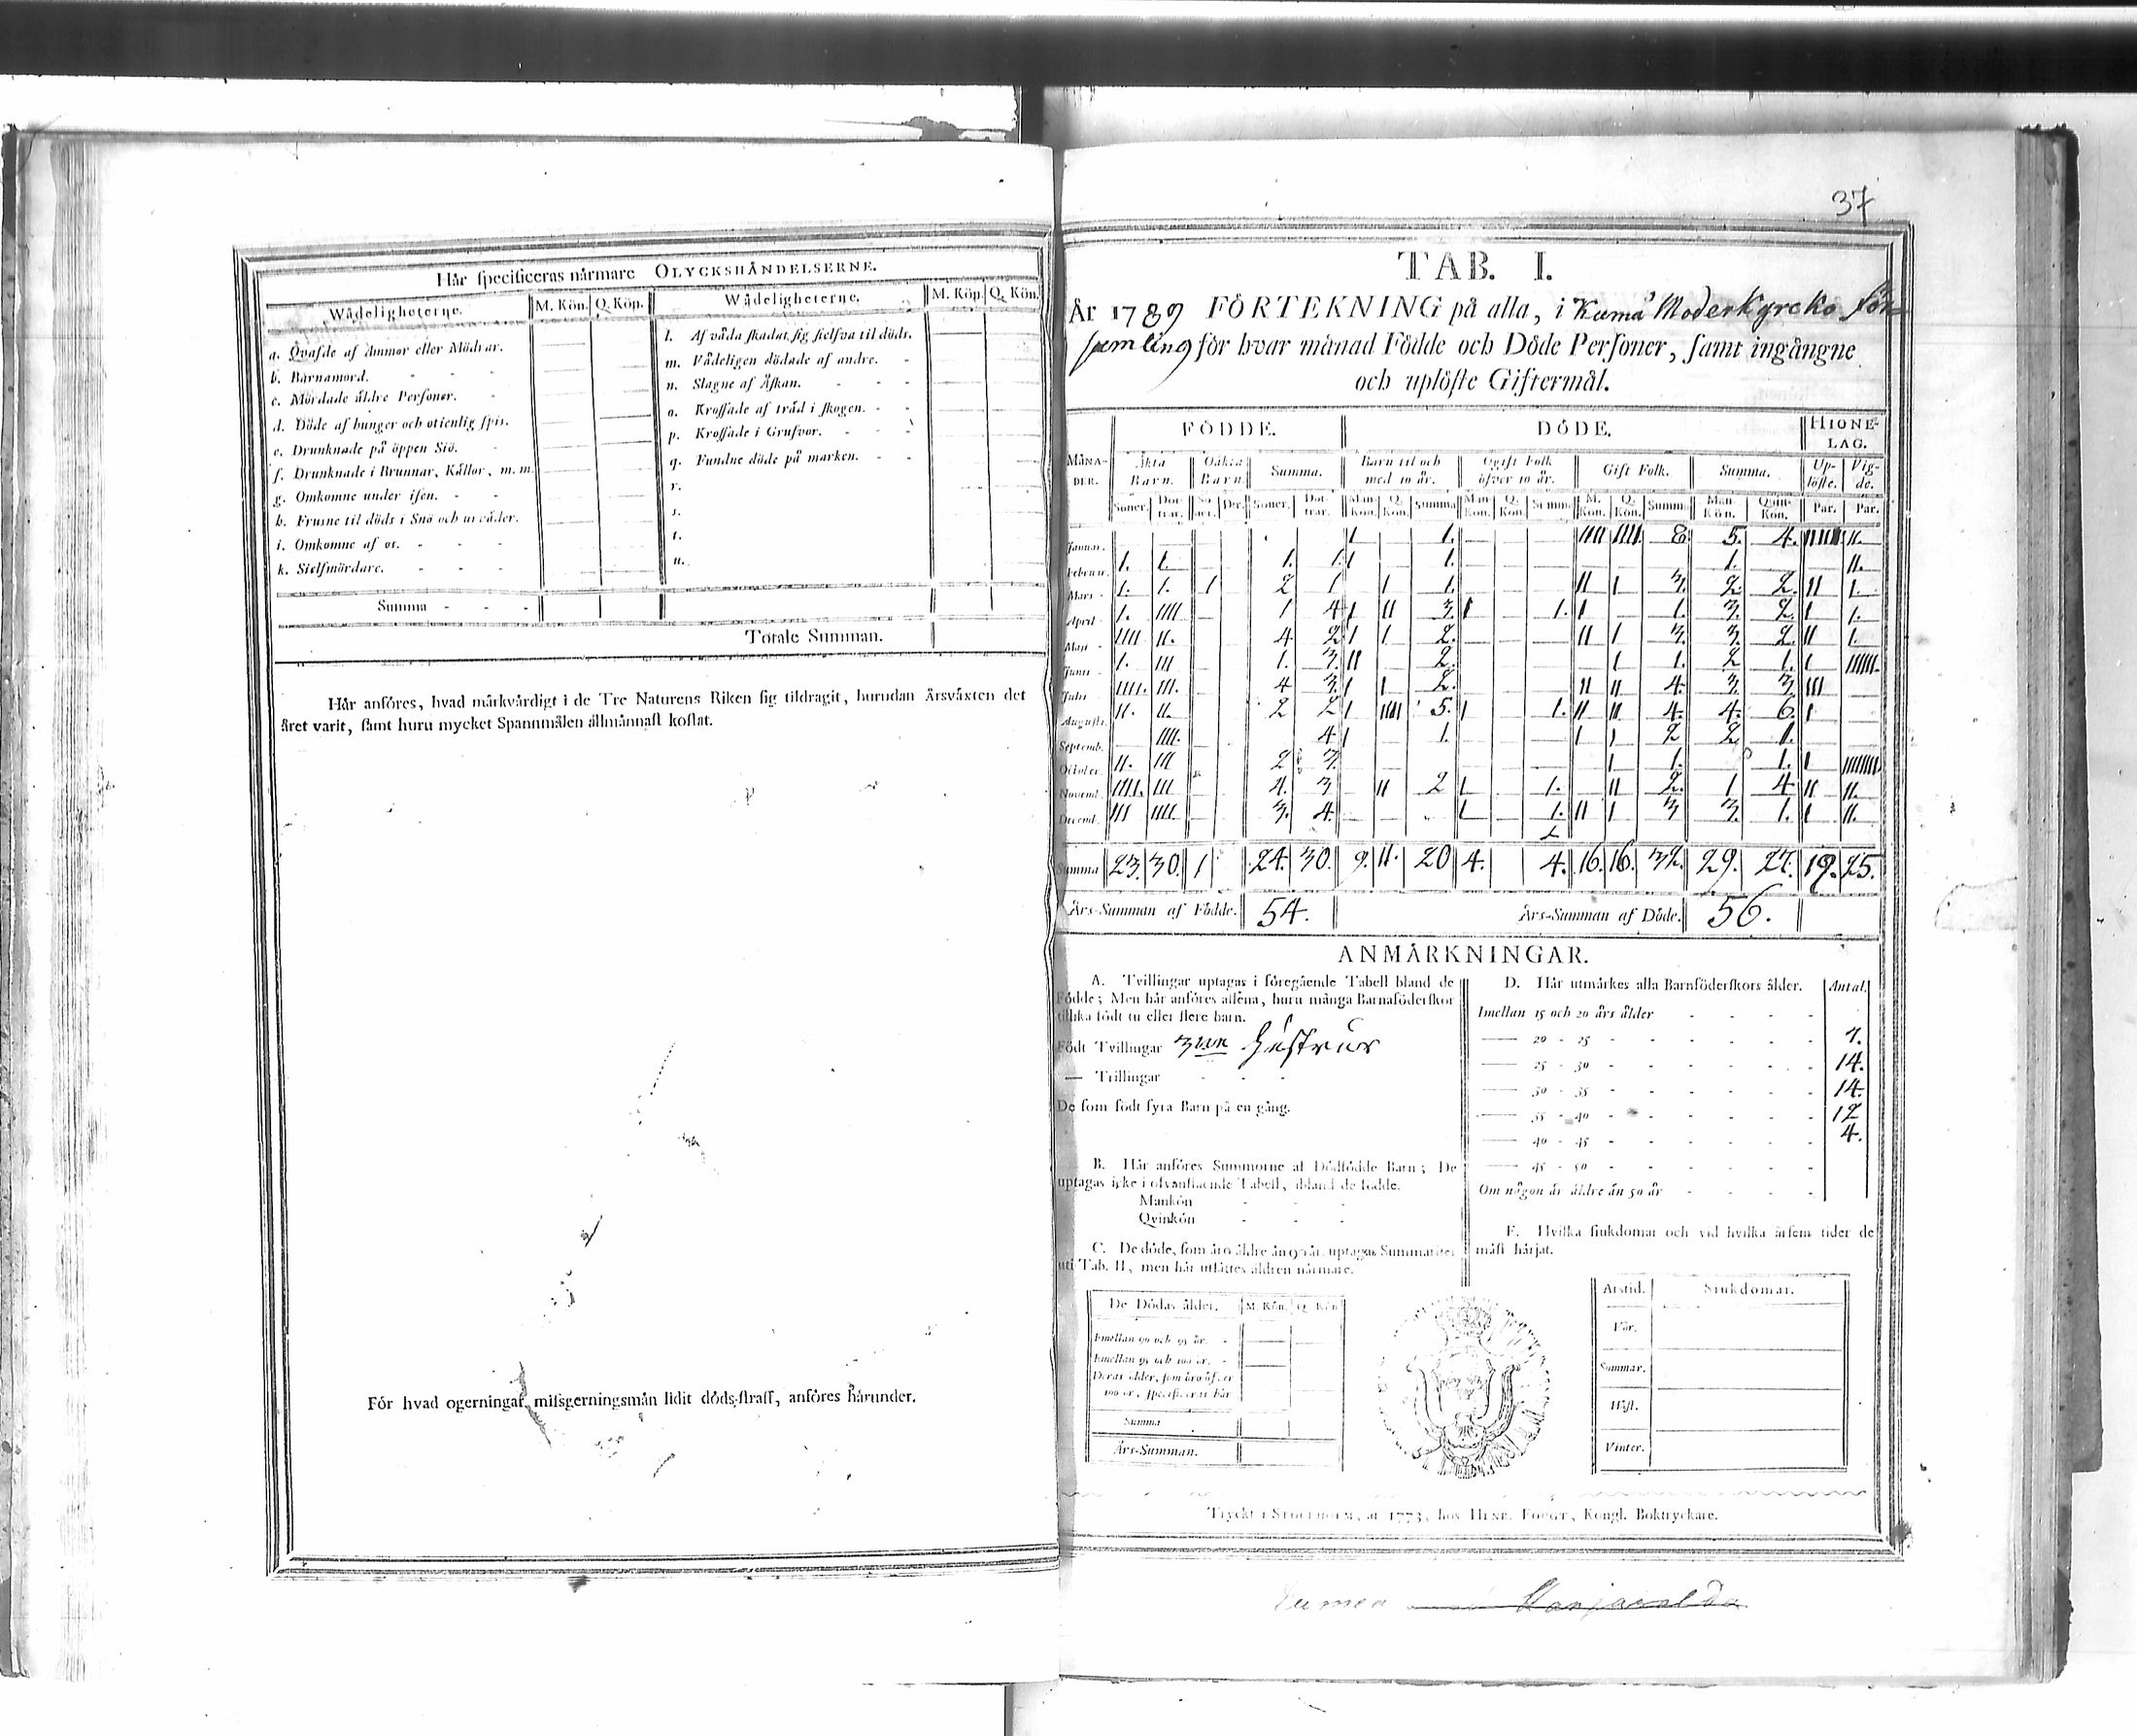 Här specificeras närmare OLYCKSHÄNDELSERNE.
Wådeligheterne. M. Kön. Q. Kön. Wådeligheterne. M. Kön. Q. Kön.
a. Qvafde af Ammor eller Mödrar.
b. Barnamord.
c. Mördade äldre Personer.
d. Döde af hunger och otienlig spis.
e. Drunknade på öppen Siö.
f. Drunknade i Brunnar, Källor, m. m.
g. Omkomne under isen.
h. Frusne til döds i Snö och urväder.
i. Omkomne af os.
k. Sielfmördare.
Summa
l. Af våda skadat sig sielfva til döds.
m. Vådeligen dödade af andre.
n. Slagne af Åskan.
o. Krossade af träd i skogen.
p. Krossade i Grufvor.
q. Fundne döde på marken.
r.
s.
t.
u.
Totale Summan.
Här anföres, hvad märkvärdigt i de Tre Naturens Riken sig tildragit, hurudan Årsväxten det
året varit, samt huru mycket Spannmålen allmännast kostat.
För hvad ogerningar missgerningsmän lidit döds-straff, anföres härunder.
37
TAB. I.
År 1789 FÖRTEKNING på alla, i Kumå Moderkyrcko För
samling för hvar månad Födde och Döde Personer, samt ingångne
och uplöste Giftermål.
FÖDDE. DÖDE. HIONE-
LAG.
MÅNA-
DER. Äkta
Barn. Oäkta
Barn. Summa. Barn til och
med 10 år. Ogift Folk
öfver 10 år. Gift Folk. Summa. Up-
löste. Vig-
de.
Söner. Dot-
trar. Sö-
ner. Dtr. Söner. Dot-
trar. Man-
Kön. Q.
Kön. Summa Man
Kön. Q.
Kön. Summa M.
Kön. Q.
Kön. Summ. Man
Kön. Quin-
Kön. Par. Par.
Januar. 1 1. IIII IIII. 8. 5. 4. II.
Februar. 1. 1. 1. 1. 1 1. 1. II.
Mars 1. 1. 1 2 1 1 1. II 1 3. 2. 2. II 1.
April 1. IIII 1 4 1 II 3. 1 1. 1 1. 3. 2. 1 1.
Maji IIII II. 4 2 1 1 2. II 1 3. 3. 2. II 1.
Junii 1. III 1. 3. II 2. 1 1. 2 1. 1 IIIIII.
Julii IIII. III. 4 3. 1 1 2. II II 4. 3. 3. III
Augusti. II. II. 2 2 1 IIII 5. 1 1. II II. 4. 4. 6. 1
Septemb. IIII. 4 1 1. 1 1 2 2. 1.
October II. III 2 3. 1 1. 1. 1
Novemb. IIII. III 4. 3 II 2 1 1. II 2. 1 4 II II.
Decemb. III IIII. 3. 4. 1 1. II 1 3 3. 1. 1 II.
Summa 23. 30. 1 24. 30. 9. 11. 20 4. 4. 16. 16. 32. 29. 27. 19. 25.
Års-Summan af Födde. 54. Års-Summan af Döde. 56.
ANMÄRKNINGAR.
A. Tvillingar uptagas i föregående Tabell bland de
Födde; Men här anföres allena, huru många Barnaföderskor
tillika födt tu eller flere barn.
Födt Tvillingar 3ne Hustrur
— Trillingar
De som födt fyra Barn på en gång.
B. Här anföres Summorne af Dödfödde Barn; De
uptagas icke i ofvanstående Tabell, ibland de födde.
Mankön
Qvinkön
C. De döde, som äro äldre än 90 år, uptagas Summariter
uti Tab. II, men här utsättes åldren närmare.
De Dödas ålder. M. Kön. Q. Kön
Emellan 90 och 95 år.
Emellan 95 och 100 år.
Deras ålder, som äro öfver
100 år, specificeras här
Summa
Års-Summan.
D. Här utmärkes alla Barnföderskors ålder. Antal.
Imellan 15 och 20 års ålder
20 - 25 7.
25 - 30 14.
30 - 35 14.
35 - 40 12
40 - 45 4.
45 - 50
Om någon är äldre än 50 år
E. Hvilka siukdomar och vid hvilka årsens tider de
mäst härjat.
Årstid. Siukdomar.
Vår.
Sommar.
Höst.
Vinter.
Tryckt i STOCKHOLM, år 1773, hos HENR. FOUGT, Kongl. Boktryckare.
Eumea Harjavalda